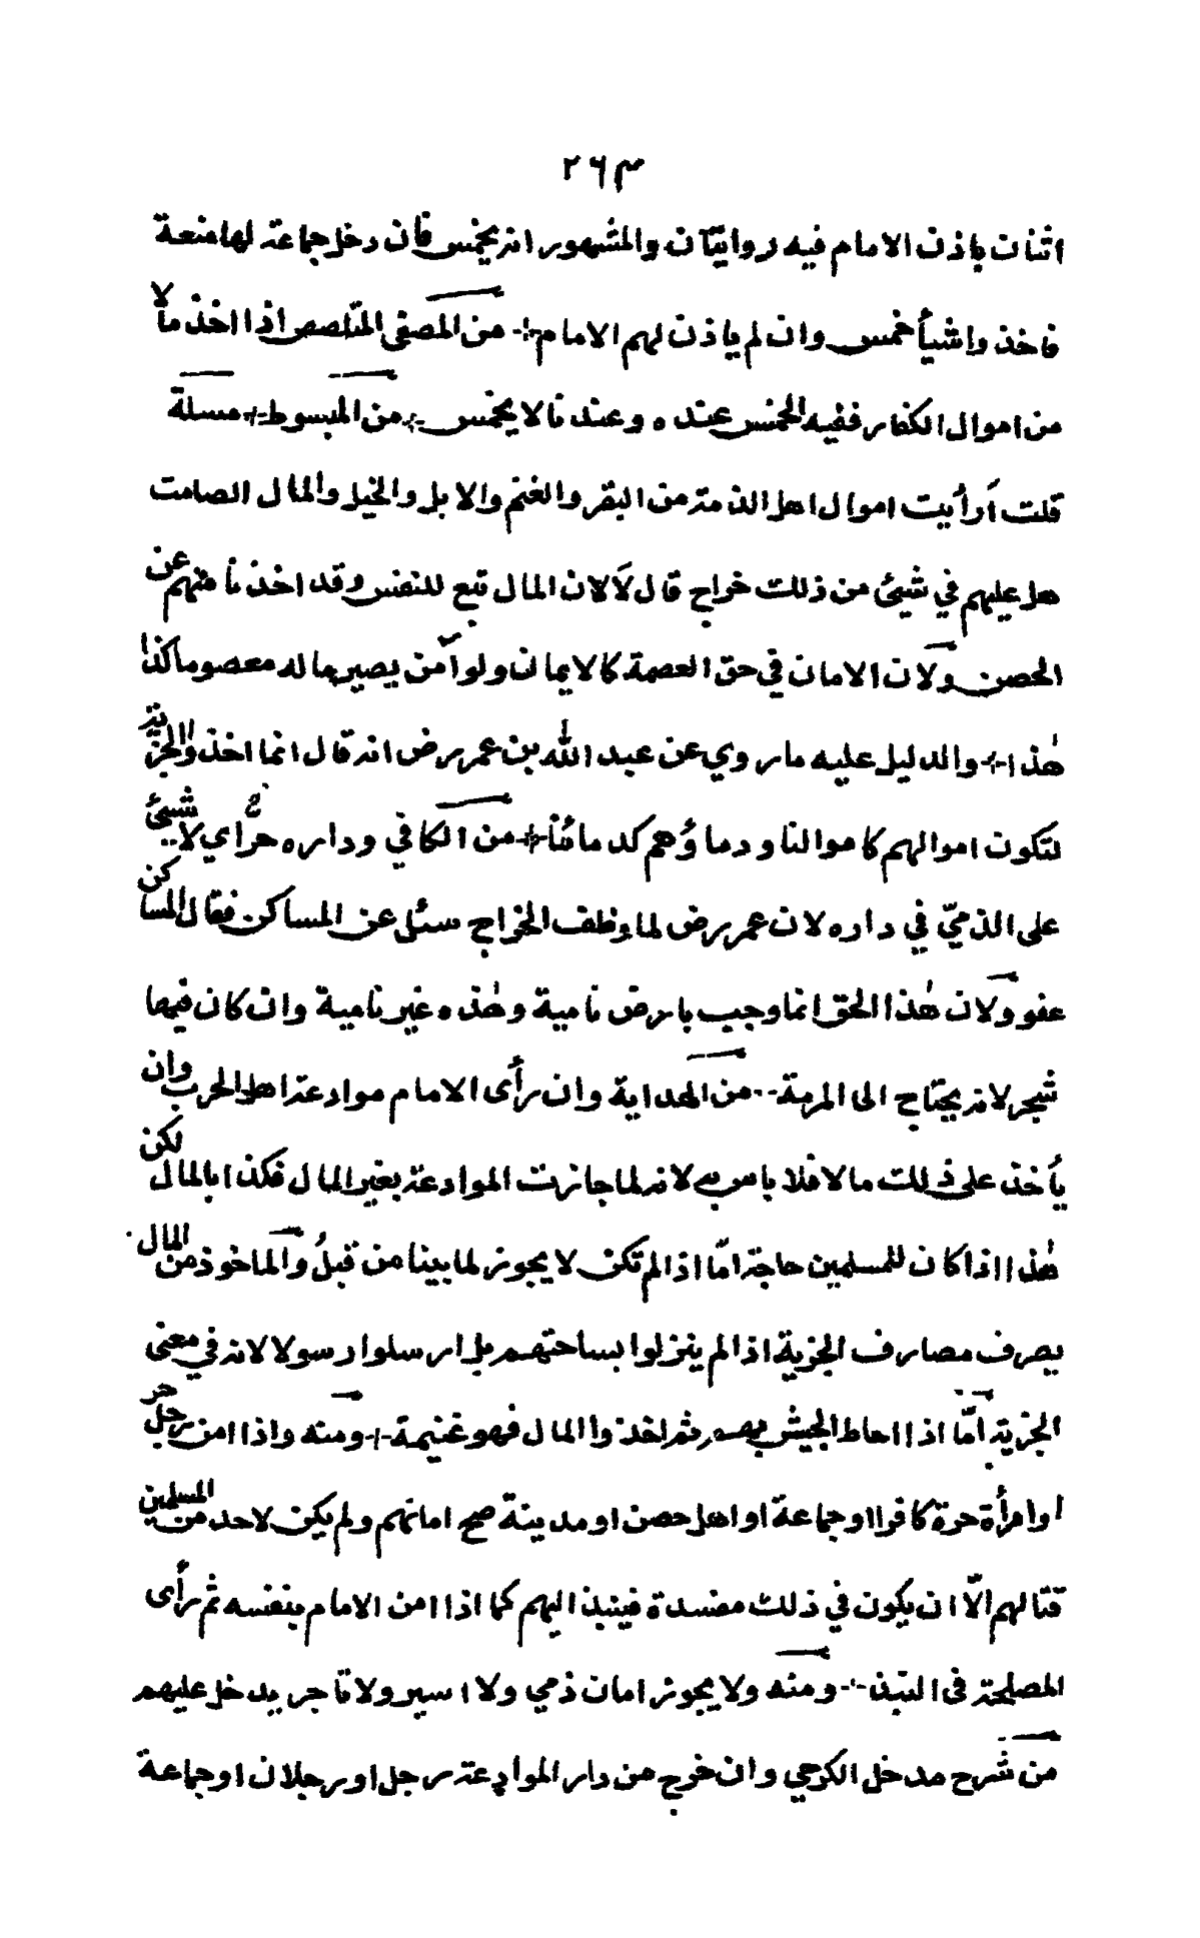 ٢٦٣
اثنان باذن الامام فيه روايتان والمشهور انه يخمس فان دخل جماعة لها منعة
فاخذوا شيأ خمس وان لم ياذن لهم الامام من المصفى المتلصص اذا اخذ مالا
من اموال الكفار ففيه الخمس عنده وعندنا لا يخمس من المبسوط مسئلة
قلت أرأيت اموال اهل الذمة من البقر والغنم والابل والخيل والمال الصامت
هل عليهم في شيئ من ذلك خراج قال لَا لان المال تبع للنفس وقد اخذنا منهم عن
الحصن ولان الامان في حق العصمة كالايمان ولو آمن يصير ماله معصوما كذا
هٰذا والدليل عليه ما روي عن عبد الله بن عمر رض انه قال انما اخذوا الجزية
لتكون اموالهم كاموالنا ودماؤهم كدمائنا من الكافي وداره حرّ اي لا شيئ
على الذميّ في داره لان عمر رض لما وظف الخراج سئل عن المساكن فقال المساكن
عفو ولان هٰذا الحق انما وجب بارض نامية وهٰذه غير نامية وان كان فيها
شجر لانه يحتاج الى المرمة من الهداية وان رأى الامام موادعة اهل الحرب وان
يأخذ على ذلك مالا فلا باس به لانه لما جازت الموادعة بغير المال فكذا بالمال لكن
هٰذا اذا كان للمسلمين حاجة امّا اذا لم تكن لا يجوز لما بينا من قبلُ والماخوذ من المال
يصرف مصارف الجزية اذا لم ينزلوا بساحتهم بل ارسلوا رسولا لانه في معنى
الجزية امّا اذا احاط الجيش بهم ثم اخذوا المال فهو غنيمة ومنه واذا امن رجل حر
او امرأة حرة كافرا او جماعة او اهل حصن او مدينة صح امانهم ولم يكن لاحد من المسلمين
قتالهم الّا ان يكون في ذلك مفسدة فينبذ اليهم كما اذا امن الامام بنفسه ثم رأى
المصلحة فى النبذ ومنه ولا يجوز امان ذمي ولا اسير ولا تاجر يدخل عليهم
من شرح مدخل الكرخي وان خرج من دار الموادعة رجل او رجلان او جماعة